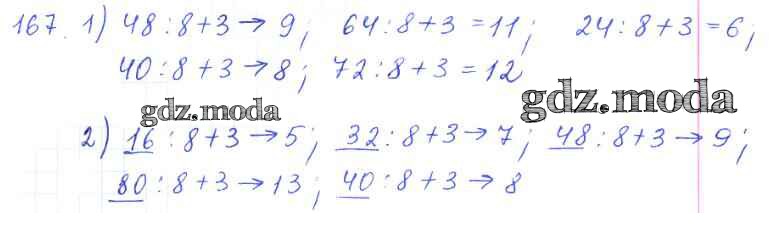 167. 1) 48 : 8 + 3 → 9; 64 : 8 + 3 = 11; 24 : 8 + 3 = 6;
40 : 8 + 3 → 8; 72 : 8 + 3 = 12
gdz.moda gdz.moda
2) 16 : 8 + 3 → 5; 32 : 8 + 3 → 7; 48 : 8 + 3 → 9;
80 : 8 + 3 → 13; 40 : 8 + 3 → 8